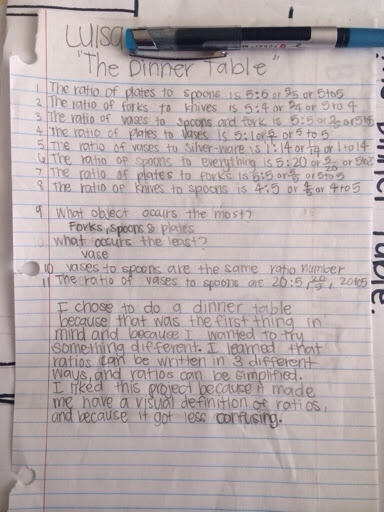 Luisa
"The Dinner Table"
1 The ratio of plates to spoons is 5:5 or 5/5 or 5 to 5
2 The ratio of forks to knives is 5:4 or 5/4 or 5 to 4
3 The ratio of vases to spoons and fork is 5:5 or
4 The ratio of plates to vases is 5:1 or or 5 to 5
5 The ratio of vases to silver-ware is 1:14 or 1/14 or 1 to 14
6 The ratio of spoons to everything is 5:20 or 5/20 or
7 The ratio of plates to forks is or 5 to 5
8 The ratio of knives to spoons is 4:5 or 4/5 or 4 to 5
9 What object occurs the most?
Forks, spoons & plates
What occurs the least?
vase
10 vases to spoons are the same ratio number
11 The ratio of vases to spoons are 20:5, 20/5, 20 to 5
I chose to do a dinner table
because that was the first thing in
mind and because I wanted to try
something different. I learned that
ratios can be written in 3 different
ways, and ratios can be simplified.
I liked this project because it made
me have a visual definition of ratios,
and because it got less confusing.
Table.